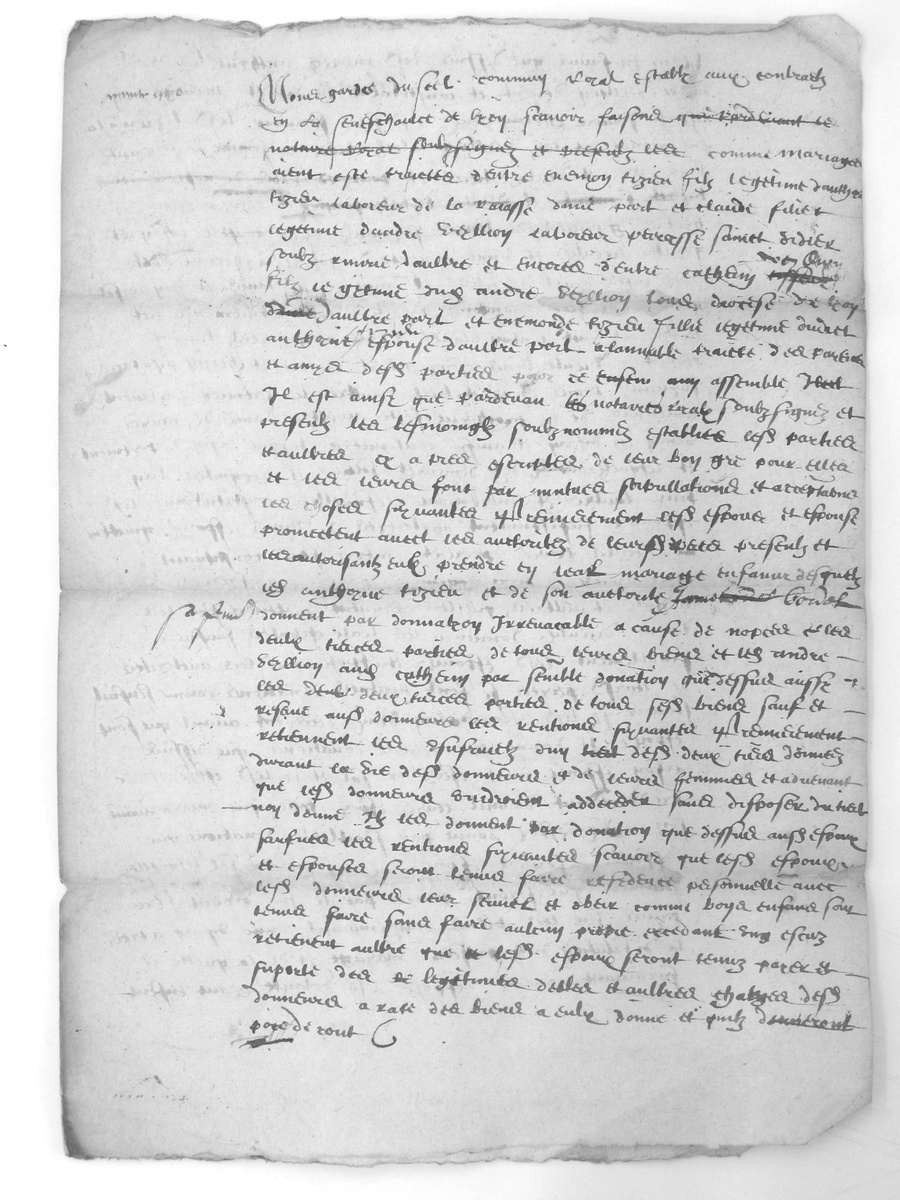 Nous garde du seel commun Royal estably aux contractz
en la seneschaucee de lyon scavoir faisons que pardevant le
notaire Royal soubzsignez et presentz les comme mariages
aient este traictez dentre enemon tizieu filz legetime danthoine
tizieu laboreur de la part et claude fillie
legetime dandre veillion laboreur parroisse sainct didier
soubz daultre et encores dentre cathelin
filz legetime dud andre veillion diocese de lyon
daultre part et enemonde tizieu fillie legetime dudict
anthoine espouse daultre part a lamiable traicte des parens
et amys desd parties pour ce assemble
Il est ainsi que pardevan les notaires royaulx soubzsignez et
presentz les tesmoingtz soubznommez establies lesd parties
et aultres cy apres escriptes de leur bon gre pour elles
et les leurs font par mutues stipullations et acceptations
les choses suyvantes premierement lesd espoux et espouse
promectent avect les auctoritez de leursd peres presentz et
les autorisantz eulx prendre en leal mariage enfaveur desquelz
led anthoine tizieu et de son auctorite
sa femme
donnent par donnation Irrevocable a cause de nopces les
deulx tierces parties de tous leurs biens et led andre
veillion aud cathelin par semble donation que dessus aussi
les deulx tierces parties de tous sesd biens sauf et
reserve ausd donneurs les rentions suyvantes premierement
retiennent les usufruictz dun tiers desd deux tiers donnez
durant la vie desd donneurs et de leurs femmes et advenant
que lesd donneurs viendroient a decedder sans disposer du tiers
non donne Ilz les donnent par donation que dessus ausd espoux
saufves les rentions suyvantes scavoir que lesd espoux
et espouses seront tenus faire residence personnelle avec
lesd donneurs leur servir et obeir comme bons enfans sont
tenus faire sans faire aulcun propre excedant ung escuz
retienent aultre que lesd espoux seront tenuz paier et
suporte des legetimes debtes et aultres charges desd
donneurs a rate des biens a eulx donne et quilz